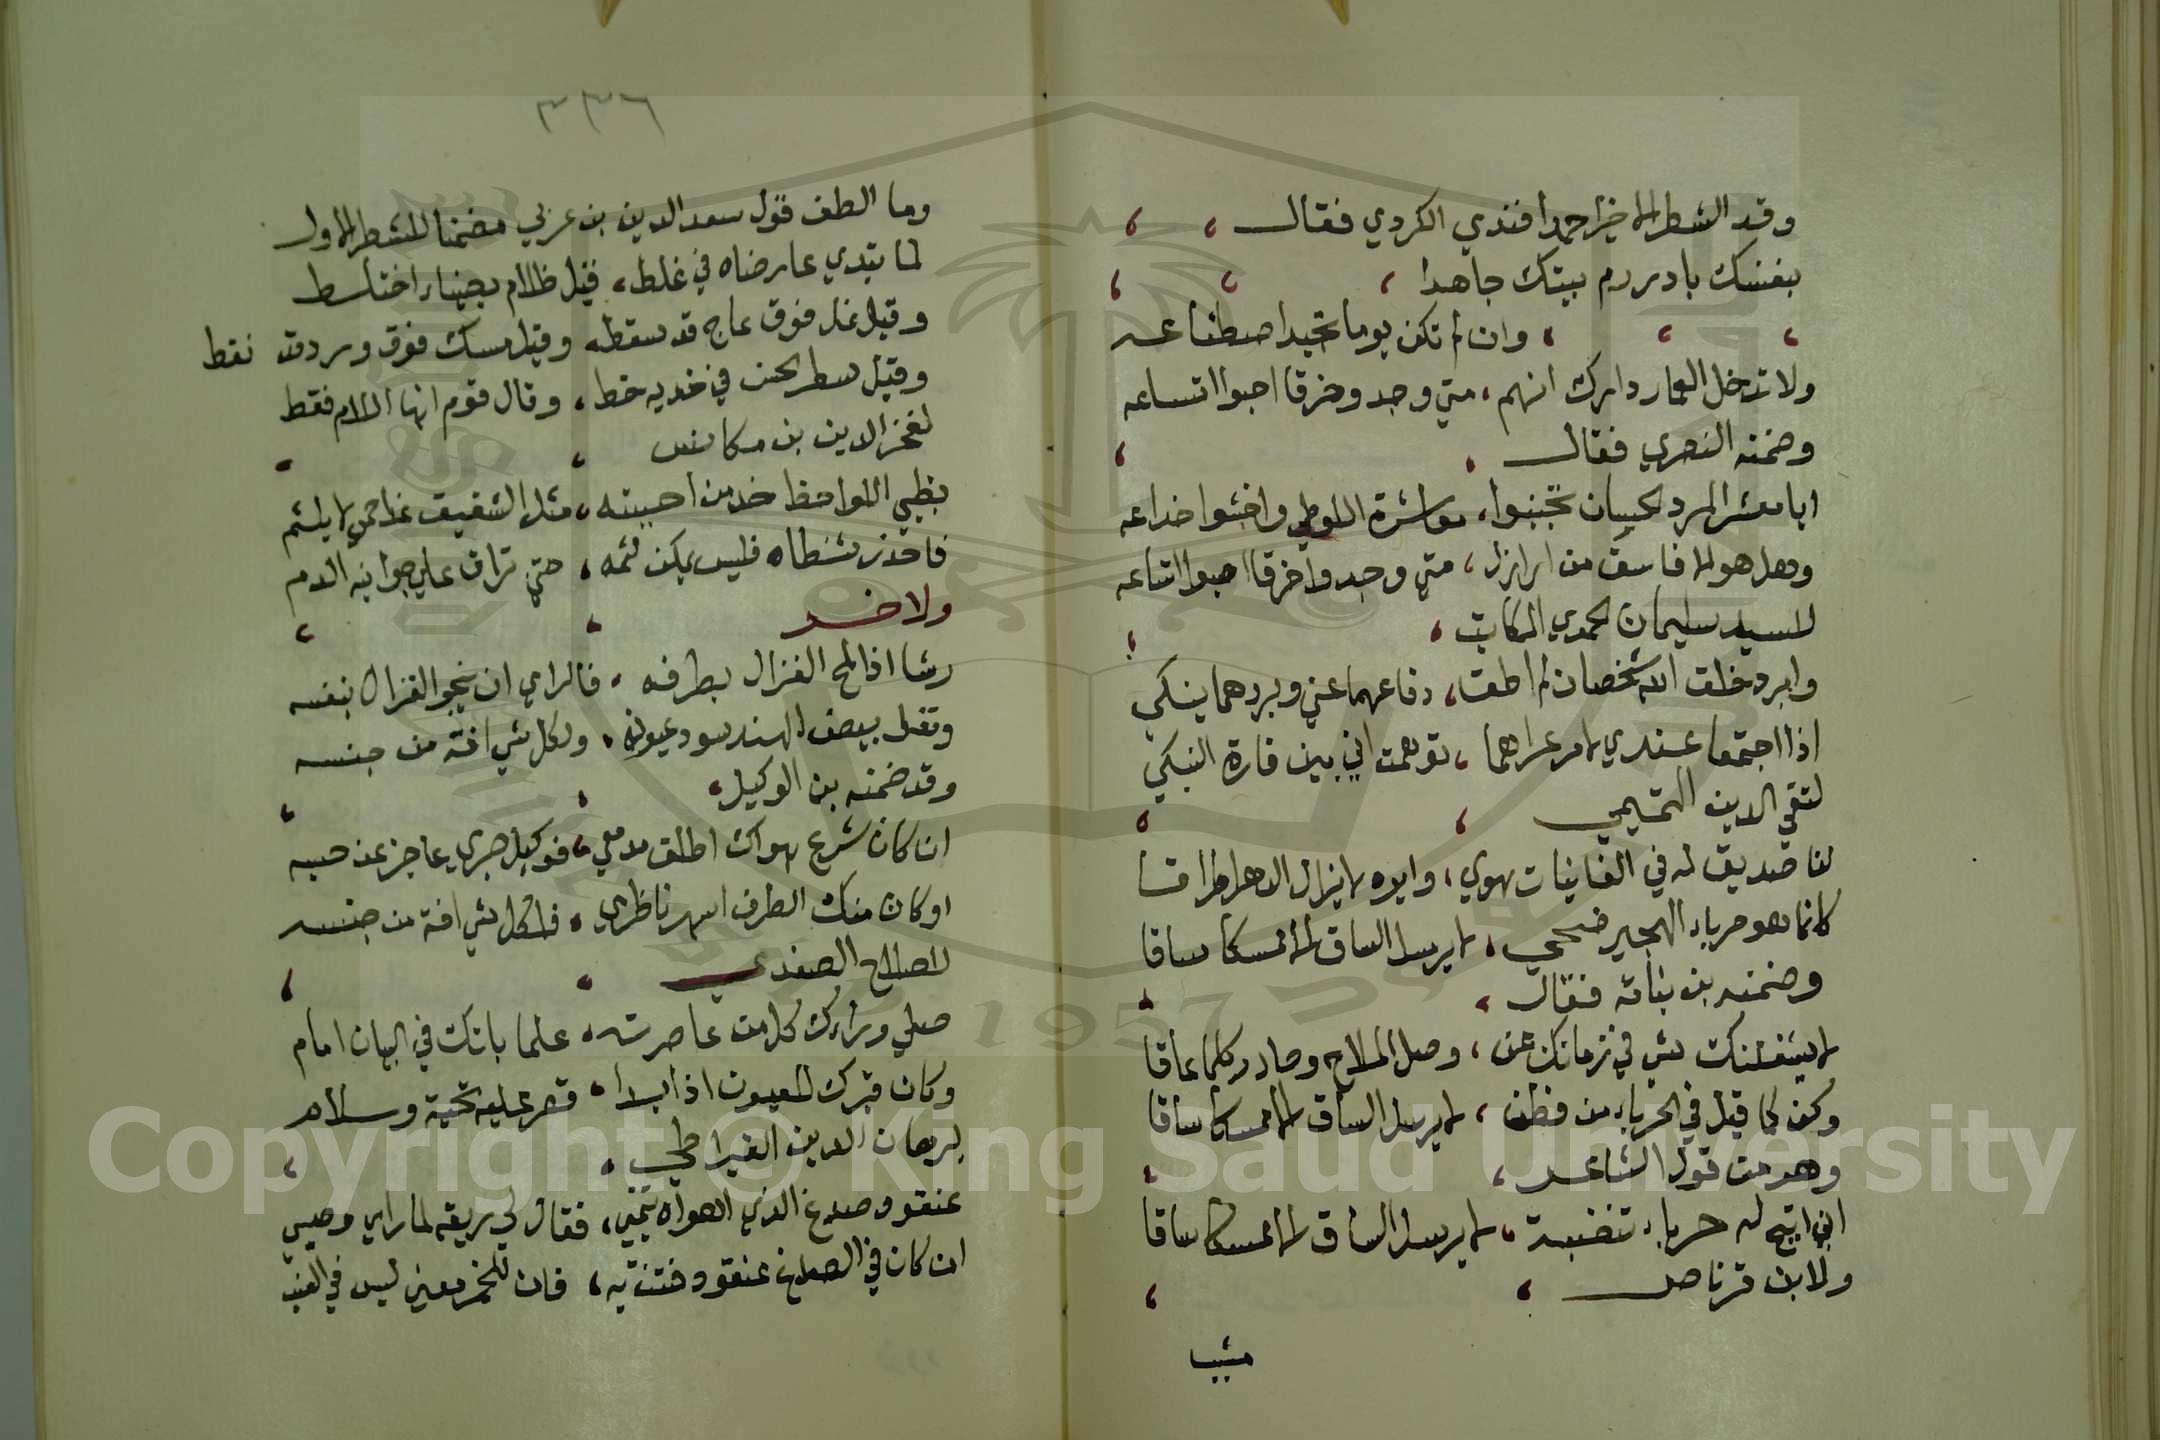 وقد الشطر الاخير احمد افندي الكردي فقال
بنفسك بادر رم بيتك جاهدا
وان لم تكن يوما تجيد اصطناعه
ولا تدخل العمار دارك انهم، متي وجدوخرقا احبوا اتساعه
وضمنه النحري فقال
ايا معشر المرد الحسان تجنبوا، معاشرة اللوطي واخشوا خداعه
وهل هو الا فاسق من اراذل، متي وجدواخرقا احبوا اتساعه
للسيد سليمان الحمدي الكاتب
وابرد خلق الله شخصان لم اطق، دفاعهما عني وبردهما ينكي
اذا اجتمعا عندي لامر عراهما، توهمت اني بين فارة النبكي
لتقي الدين التميمي
لنا صديق له في الغانيات هوي، وايره لا يزال الدهر
كانما هو حرباء الهجير ضحي، لا يرسل الساق الا ممسكا ساقا
وضمنه بن نباتة فقال
لا يشغلنك شي في زمانك عن، وصل الملاح وصادر كلما عاقا
وكن كما قيل في الحرباء من فطن، لا يرسل الساق الا ممسكا ساقا
وهو من قول الشاعر
اني اتيح له حرباء تنضبة، لا يرسل الساق الا ممسكا ساقا
ولابن قرناص
مشبب
٣٣٦
وما الطف قول سعد الدين بن عربي مضمنا للشطر الاول
لما تبدي عارضاه في غلط، قيل ظلام بضياء اختلط
وقيل نمل فوق عاج قد سقط، وقيل مسك فوق ورد قد نقط
وقيل سطر الحسن في خديه خط، وقال قوم انها اللام فقط
لفخر الدين بن مكانس
بظبي اللواحظ خد من احببته، مثل الشقيق غدا حمي لا يلثم
فاحذر شظاه فليس يمكن لثمه، حتي تراق علي جوانبه الدم
ولاخر
رشا اذا لمح الغزال بطرفه، فالراي ان ينجو الغزال بنفسه
وتفل بيض الهند سود عيونه، ولكل شي افة من جنسه
وقد ضمنه بن الوكيل
ان كان شرع هواك اطلق مدمعي، فوكيل صبري عاجز عن حبسه
او كان منك الطرف اسهر ناظري، فلكل شي افة من جنسه
للصلاح الصفدي
صلي وراءك كل من عاصرته، علما بانك في البيان امام
وكان قبرك للعيون اذا بدا، قصر عليه تحية وسلام
لبرهان الدين القيراطي
عنقود صدغ الذي اهواه تيمني، فقال لي ريقه لما راي وصبي
ان كان في الصدغ عنقود فتنت به، فان للخمر معني ليس في العنب